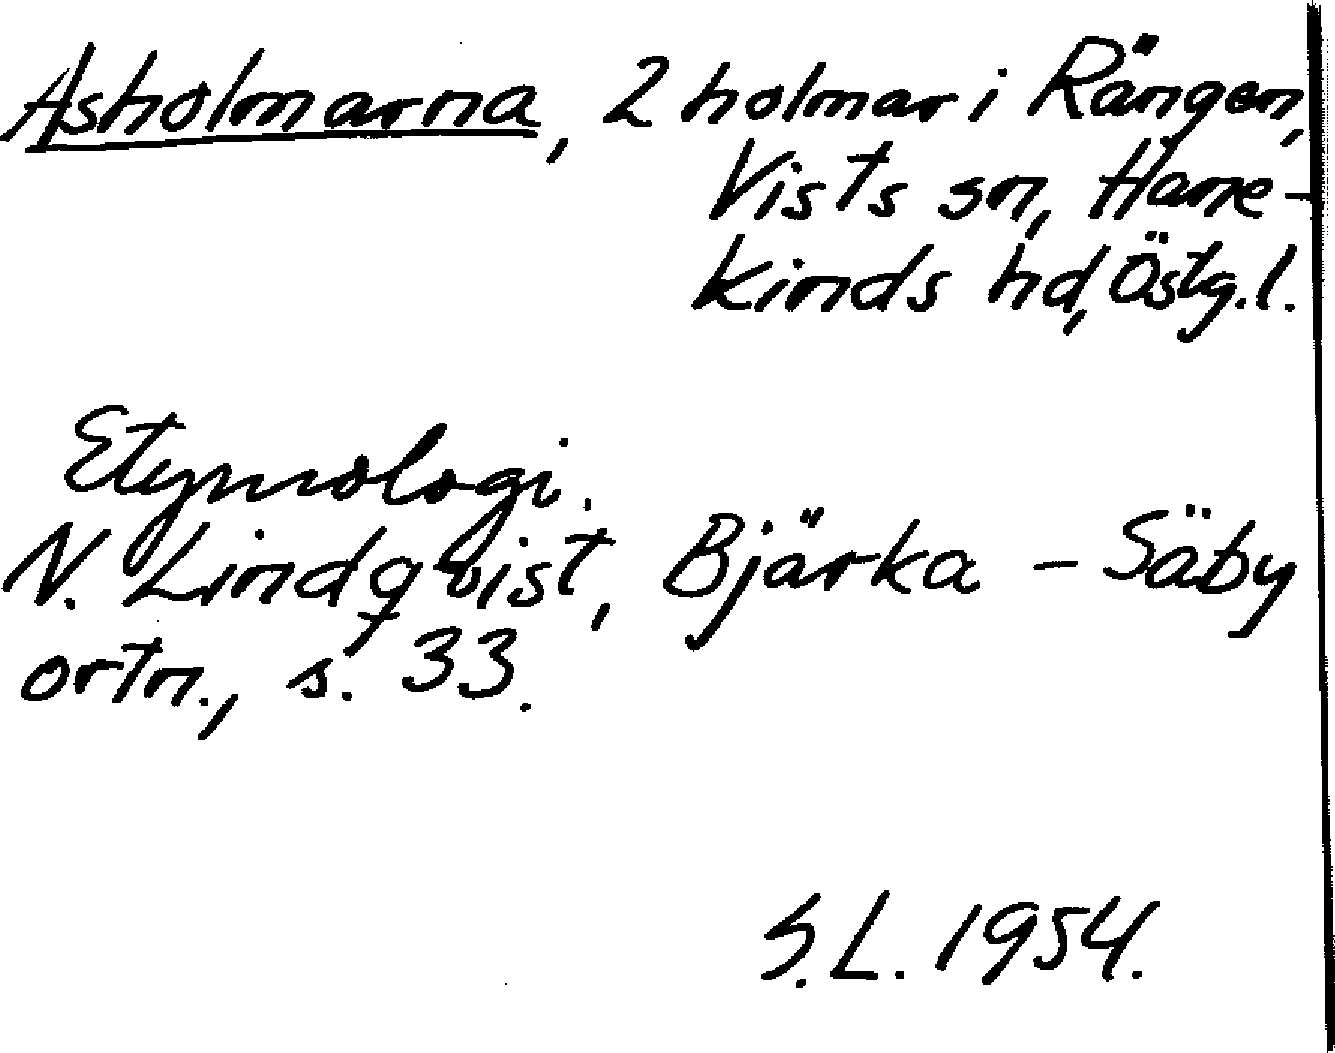 Asholmarna, 2 holmar i Rängen,
Vists sn, Hane-
kinds hd, Östg.l.
Etymologi.
N. Lindqvist, Bjärka - Säby
ortn., s. 33.
S.L. 1954.